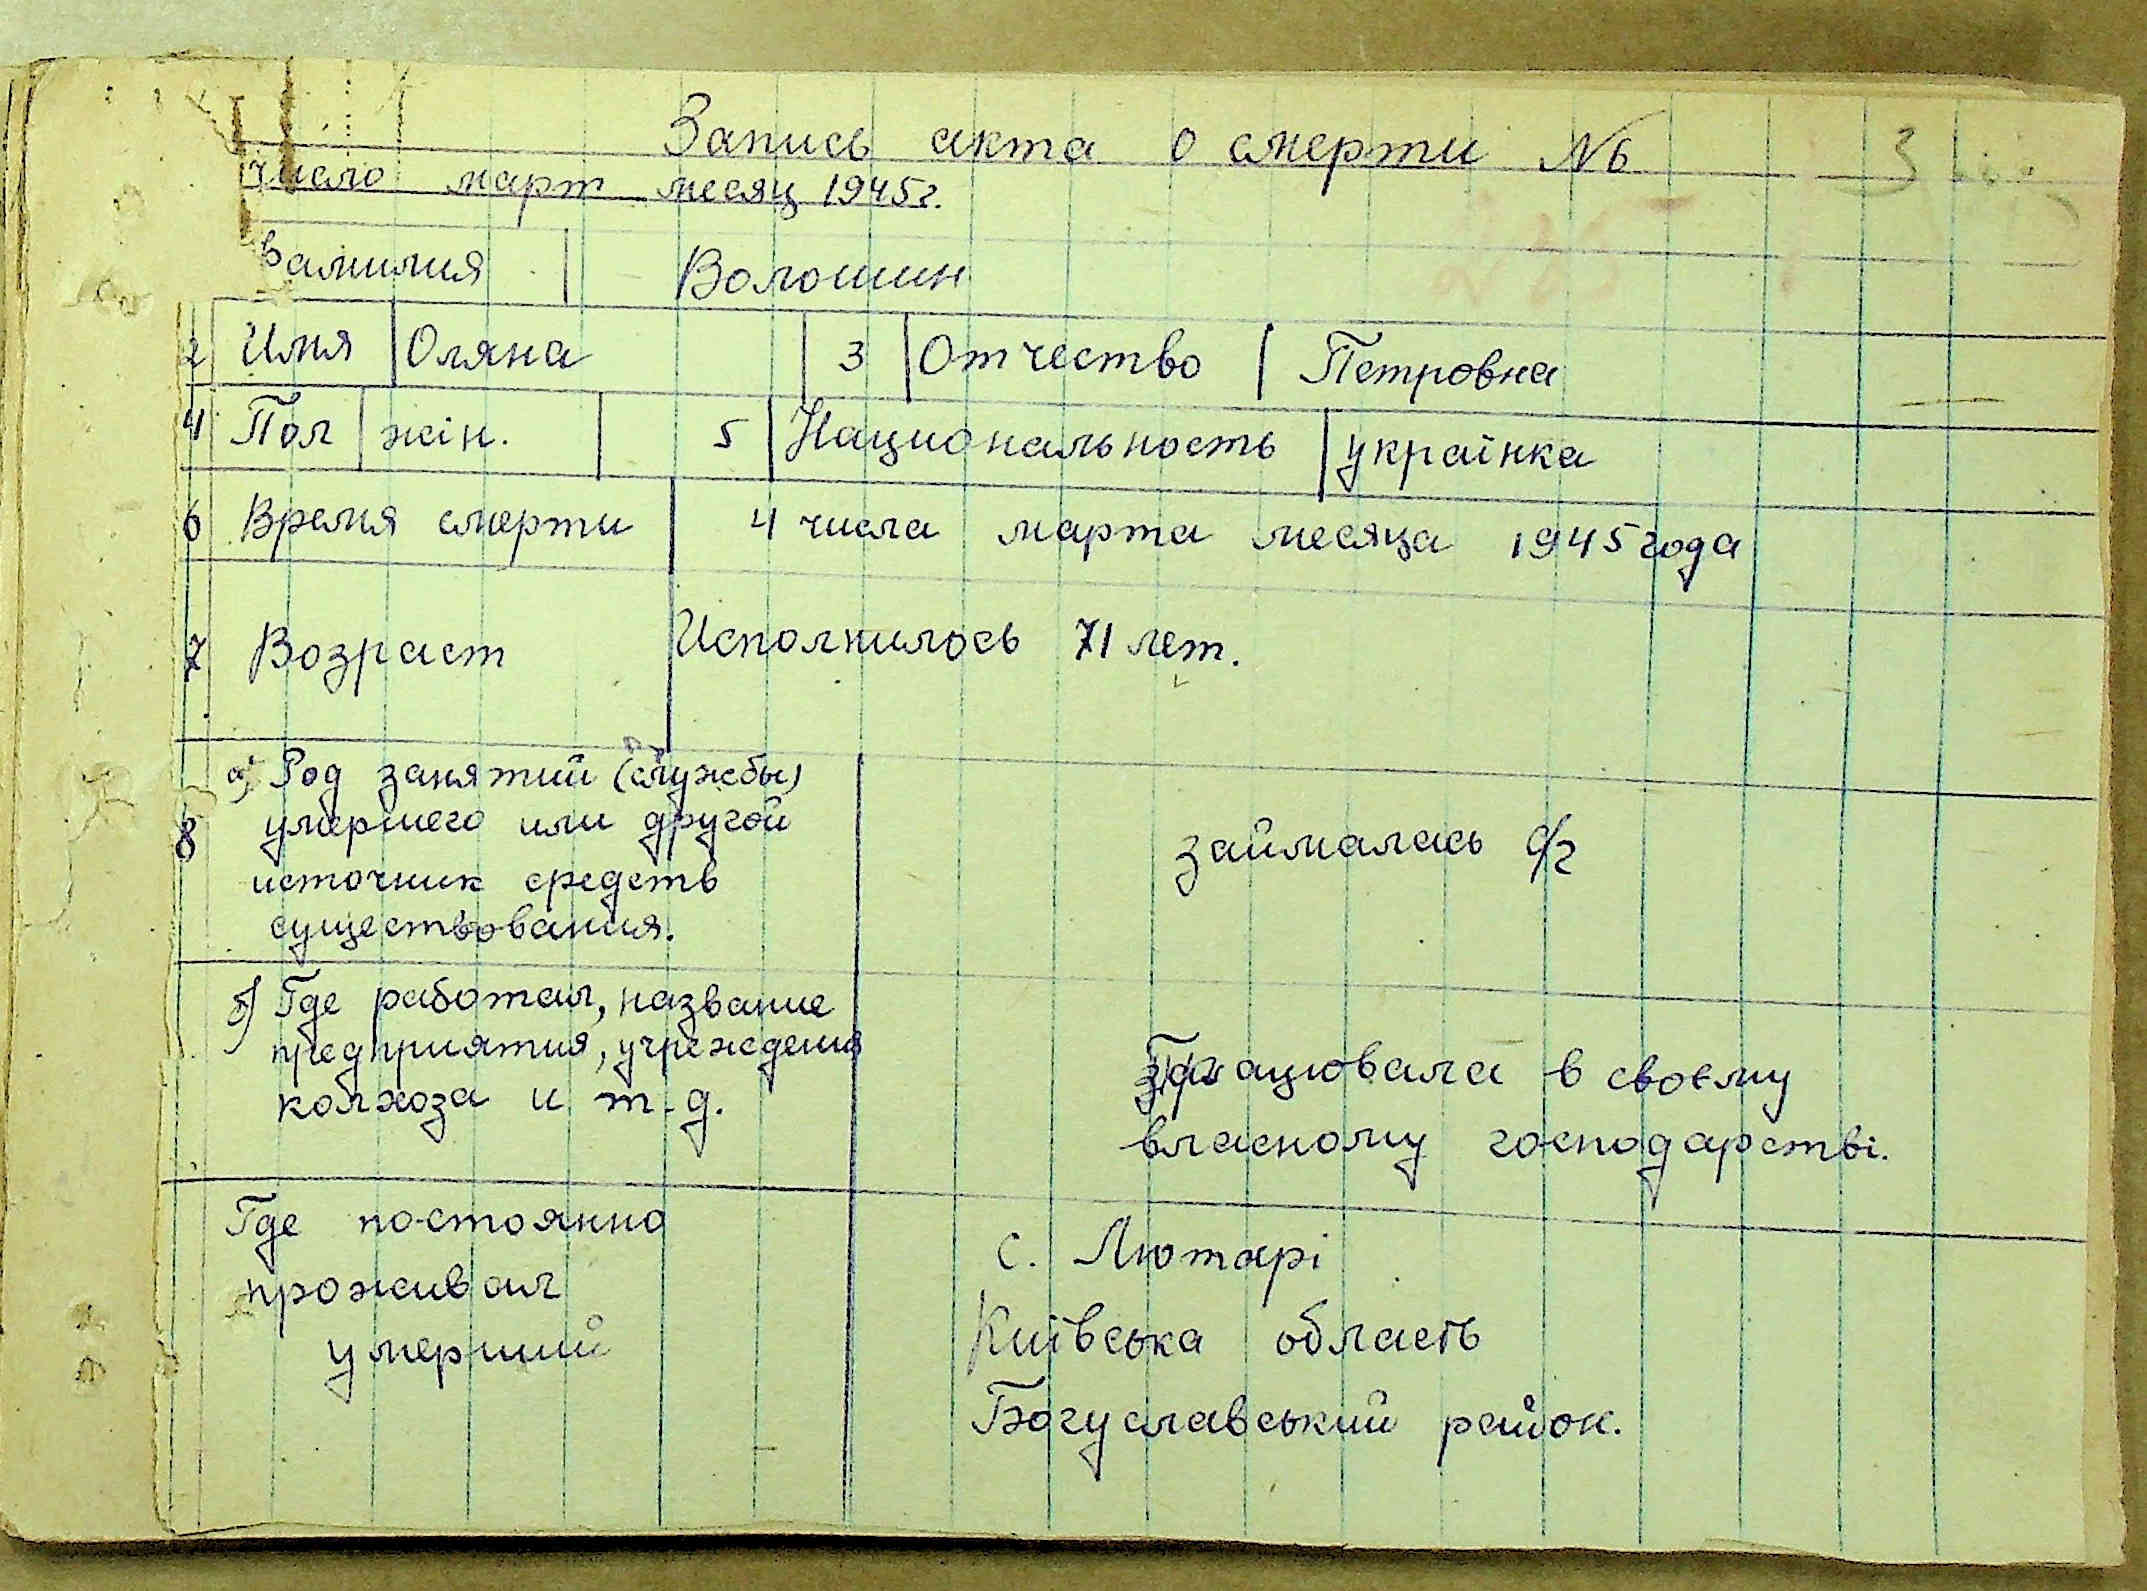 Запись акта о смерти №6 3
число март месяц 1945г.
Фамилия Волошин
2 Имя Оляна 3 Отчество Петровна
4 Пол жін. 5 Национальность українка
6 Время смерти 4 числа марта месяца 1945 года
7 Возраст Исполнилось 71 лет.
а) Род занятий (службы)
8 умершего или другой займалась с/г
источник средств
существования.
б) Где работал, название
предприятия, учреждения Працювала в своєму
колхоза и т.д. власному господарстві.
Где постоянно с. Лютарі
проживал Київська область
умерший Богуславський район.